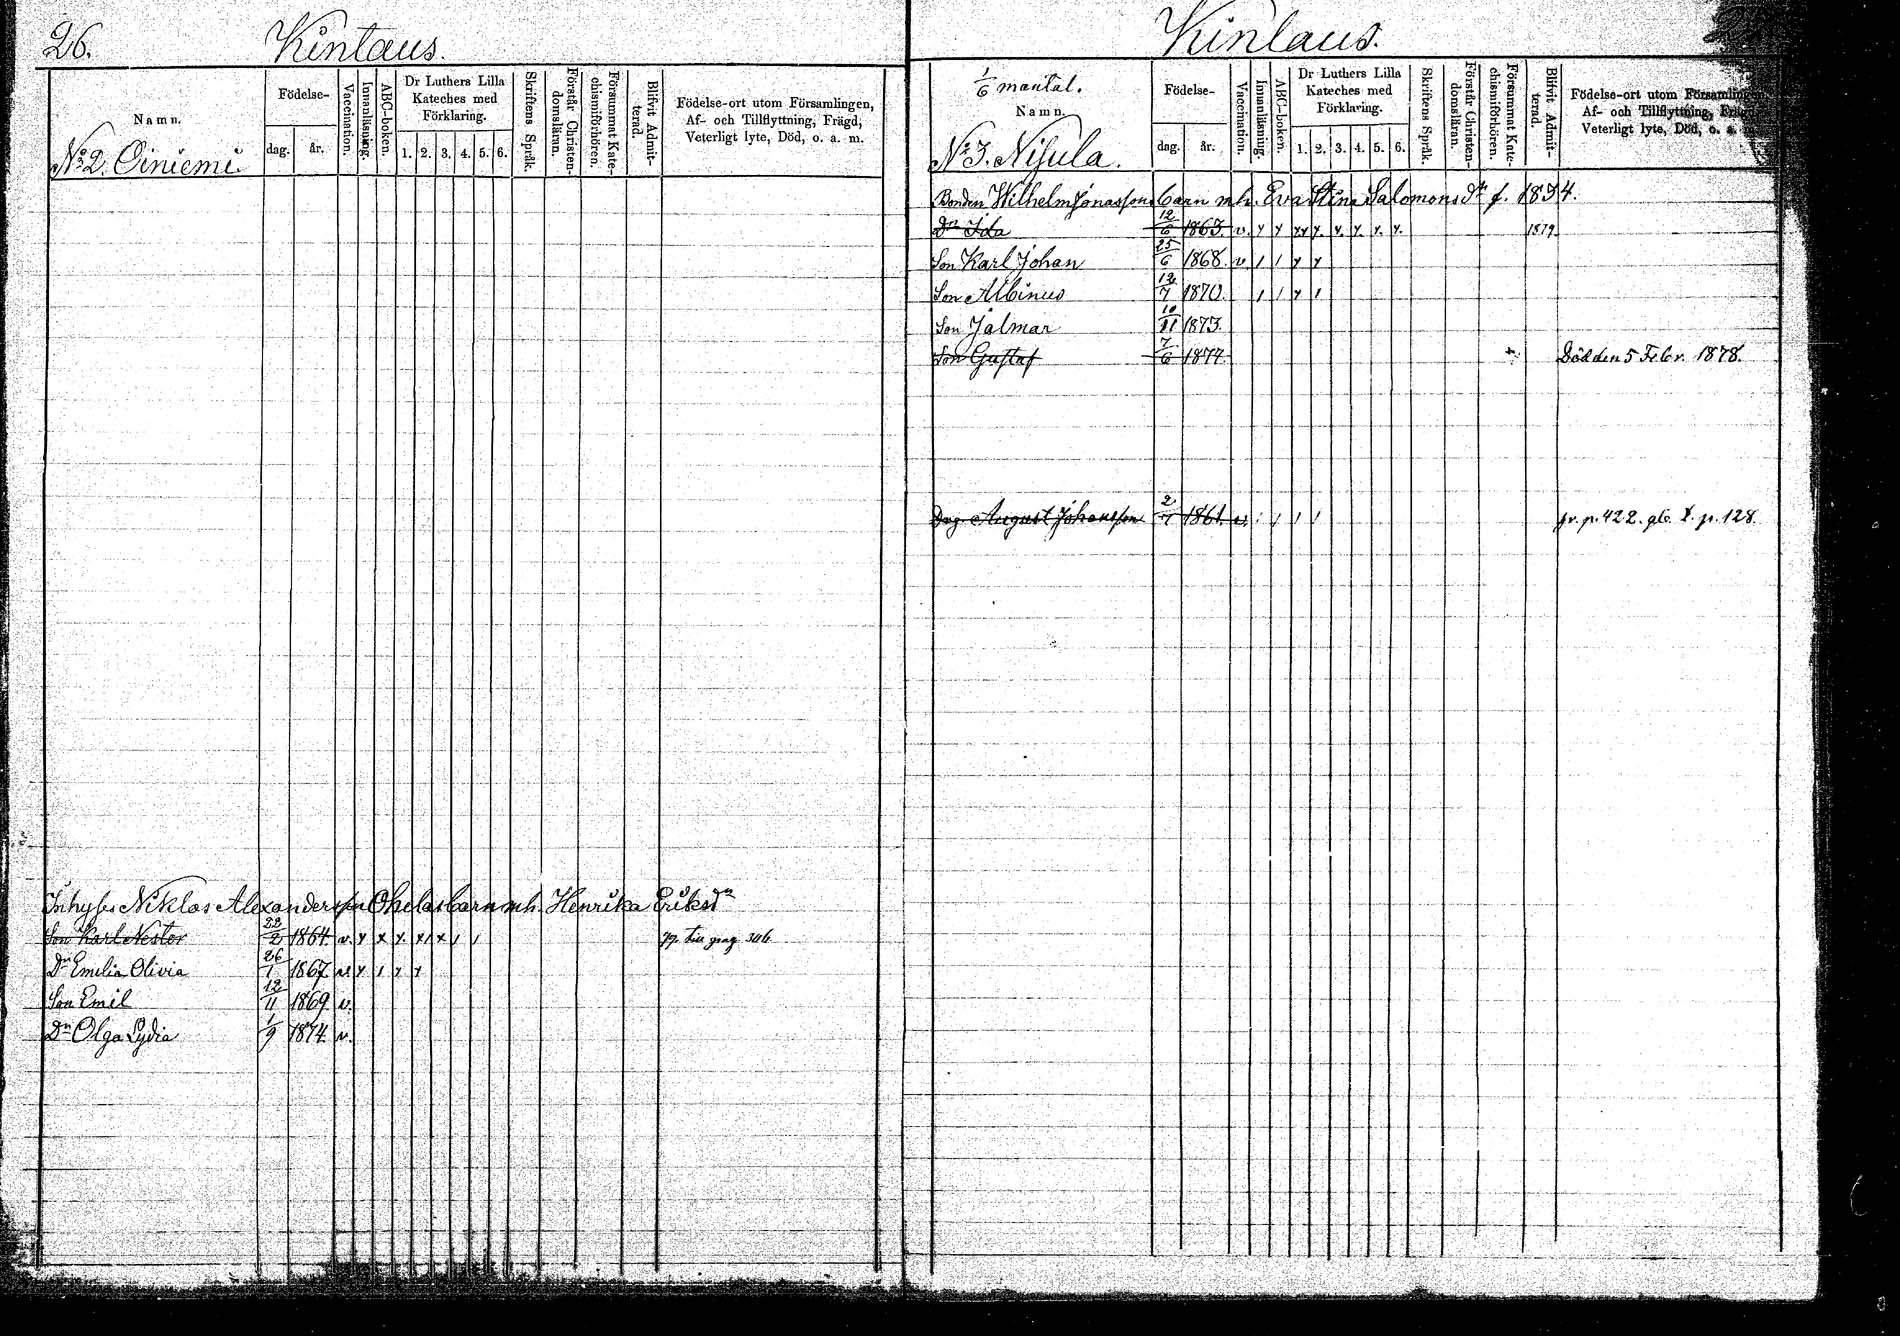 26.
Kintaus.
Namn.
Födelse-
dag.
år.
Vaccination.
Innanläsning.
ABC-boken.
Dr Luthers Lilla
Kateches med
Förklaring.
1. 2. 3. 4. 5. 6.
Skriftens Språk.
Förstår Christen-
domsläran.
Försummat Kate-
chismiförhören.
Blifvit Admit-
terad.
Födelse-ort utom Församlingen,
Af- och Tillflyttning, Frägd,
Veterligt lyte, Död, o. a. m.
No 2. Oiniemi
Inhyses Niklas Alexandersson Ohelas barn m h. Henrika Eriksdr
Son Karl Nestor 22/2 1864. v. x x x. x1 x 1 1
Dr Emelia Olivia 26/1 1867. v. x 1 x x
Son Emil 12/11 1869 v.
Dr Olga Lydia 1/9 1874. v.
Kintaus.
1/6 mantal.
Namn.
Födelse-
dag.
år.
Vaccination.
Innanläsning.
ABC-boken.
Dr Luthers Lilla
Kateches med
Förklaring.
1. 2. 3. 4. 5. 6.
Skriftens Språk.
Förstår Christen-
domsläran.
Försummat Kate-
chismiförhören.
Blifvit Admit-
terad.
Födelse-ort utom Församlingen
Af- och Tillflyttning, Frägd
Veterligt lyte, Död, o. a. m.
No 3. Nisula.
Bonden Wilhelm Jonassons barn m h. Eva Stina Salomonsdr f. 1834.
Dr Ida 12/6 1863. v. x x xx x. x. x. x. x. 1879.
Son Karl Johan 25/6 1868. v. 1 1 x x
Son Albinus 12/7 1870. 1 1 x 1
Son Jalmar 10/11 1873.
Son Gustaf 7/6 1877. Död den 5 Febr. 1878.
Drg. August Johansson 2/7 1861. v. 1 1 1 1 fr. p. 422. p. 128.